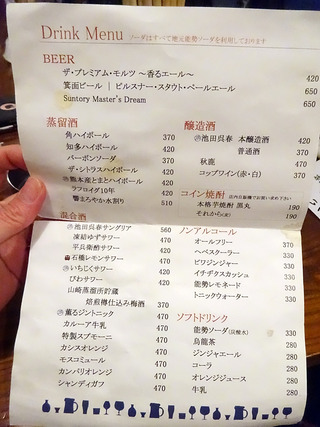 Drink Menu ソーダはすべて地元能勢ソーダを利用しております
BEER
ザ・プレミアム・モルツ ～香るエール～ 420
箕面ビール | ピルスナー・スタウト・ペールエール 650
Suntory Master's Dream 650
蒸留酒
角ハイボール 370
知多ハイボール 420
バーボンソーダ 370
ザ・シトラスハイボール 370
熊本産とまとハイボール 420
ラフロイグ10年
響まろやか水割り 510
醸造酒
池田呉春 本醸造酒 420
普通酒 370
秋鹿 470
コップワイン(赤・白) 370
コイン焼酎
本格芋焼酎 黒丸 190
それから(麦) 190
混合酒
池田呉春サングリア 560
凍結ゆずサワー 470
平兵衛酢サワー 420
石槌レモンサワー 470
いちじくサワー 470
びわサワー 470
山崎蒸溜所貯蔵
焙煎樽仕込み梅酒 370
薫るジントニック 470
カルーア牛乳 470
特製スプモーニ 470
カシスオレンジ 470
モスコミュール 470
カンパリオレンジ 470
シャンディガフ 470
ノンアルコール
オールフリー 370
ヘベスクーラー 330
ビワジンジャー 330
イチヂクスカッシュ 330
能勢レモネード 330
トニックウォーター 330
ソフトドリンク
能勢ソーダ(炭酸水) 330
烏龍茶 280
ジンジャエール 280
コーラ 280
オレンジジュース 280
牛乳 280